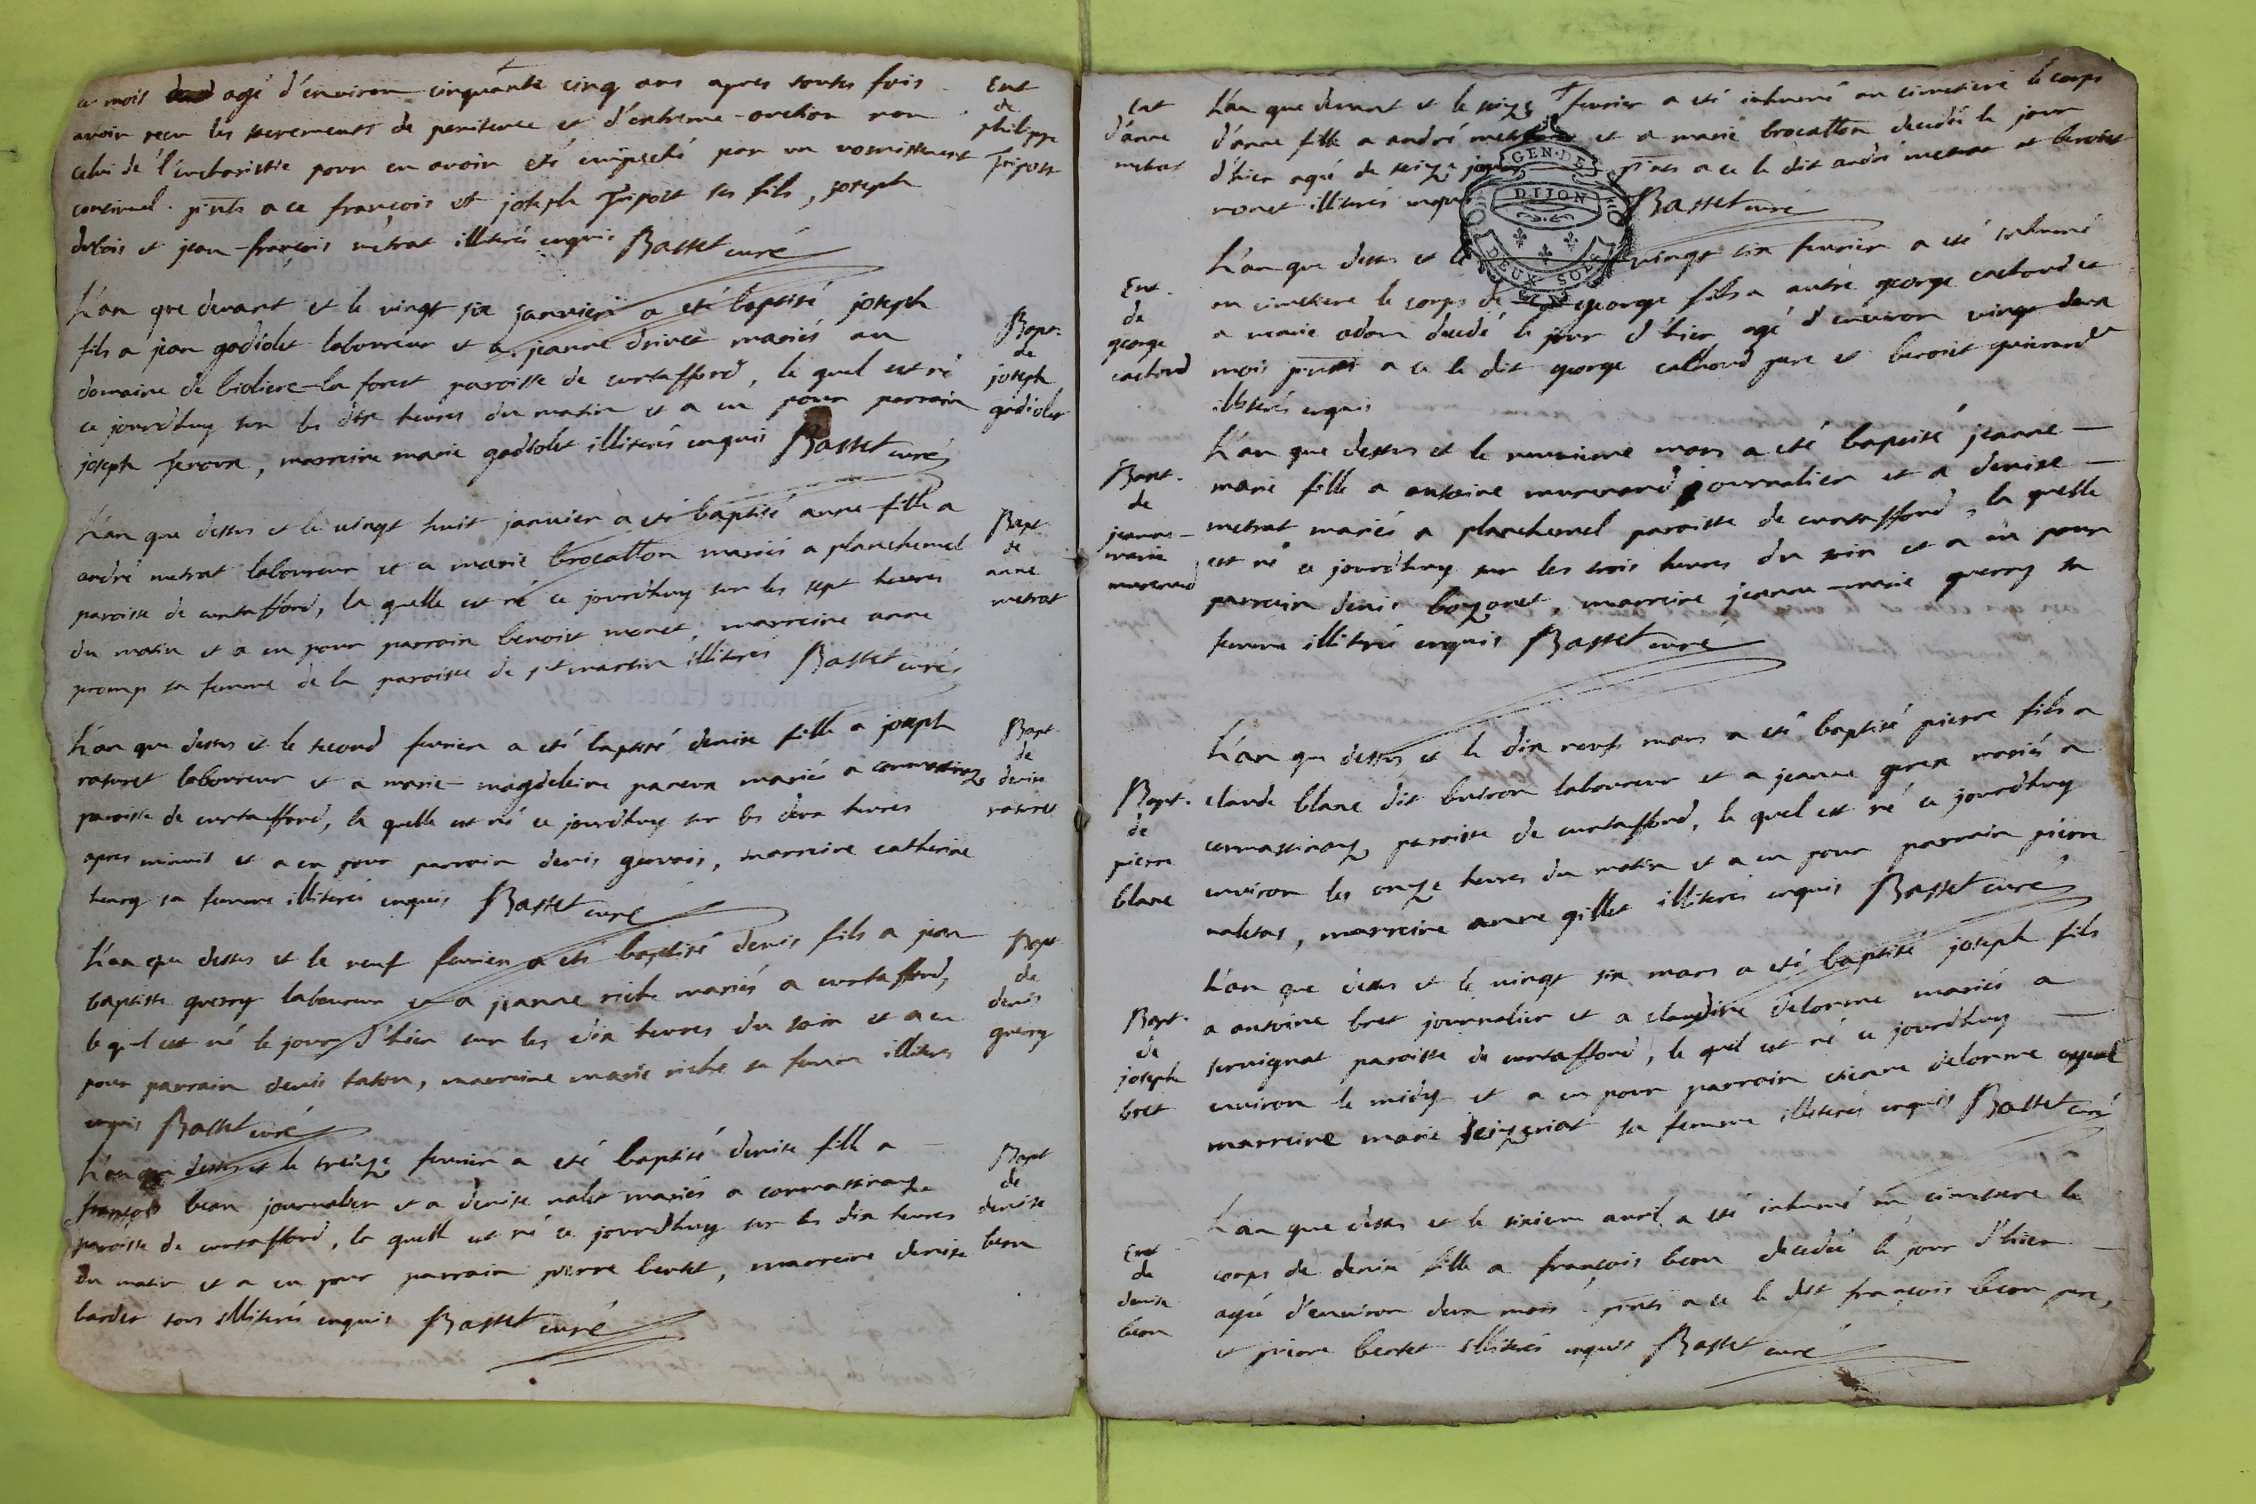 ce mois agé d'environ cinquante cinq ans apres toutes fois
avoir reçu les sacrements de penitence et d'extreme-onction non
celui de l'eucharistie pour en avoir été empeché par un vomissement
continuel. pnts a ce françois et joseph Tripost ses fils, joseph
dubois et jean-françois metrat illiterés enquis Basset curé
Ent
de
philippe
Tripost
L'an que devant et le vingt six janvier a eté baptisé joseph
fils a jean godiolet laboureur et a jeanne drivet mariés au
domaine de bioliere-la forest paroisse de curtafford, le quel est né
ce jourd'huy sur les dix heures du matin et a eu pour parrain
joseph, marreine marie godiolet illiterés enquis Basset curé
Bapt.
de
joseph
godiolet
L'an que dessus et le vingt huit janvier a eté baptisé anne fille a
andré metrat laboureur et a marie brocatton mariés a planchemel
paroisse de curtafford, la quelle est né ce jourd'huy sur les sept heures
du matin et a eu pour parrain benoist monet, marreine anne
promp sa femme de la paroisse de st martin illiterés Basset curé
Bapt
de
anne
metrat
L'an que dessus et le second fevrier a eté baptisé denise fille a joseph
laboureur et a marie-magdeleine mariés a cormassiraux
paroisse de curtafford, la quelle est né ce jourd'huy sur les deux heures
apres minuit et a eu pour parrain denis gervais, marreine catherine
henry sa femme illiterés enquis Basset curé
Bapt
de
denise
L'an que dessus et le neuf fevrier a eté baptisé denis fils a jean
baptiste guerry laboureur et a jeanne riche mariés a curtafford,
le quel est né le jour d'hier sur les dix heures du soir et a eu
pour parrain denis, marreine marie riche sa femme illiterés
enquis Basset curé
Bapt
de
denis
guerry
L'an que dessus et le treize fevrier a eté baptisé denise fille a
françois beon journalier et a denise mariés a cormassiraux
paroisse de curtafford, la quelle est né ce jourd'huy sur les dix heures
du matin et a eu pour parrain pierre bertet, marreine denise
bardet tous illiterés enquis Basset curé
Bapt
de
denise
beon
Ent
d'anne
metrat
L'an que devant et le seize fevrier a eté inhumé au cimetiere le corps
d'anne fille a andré metrat et a marie brocatton decedée le jour
d'hier agé de seize jours pnts a ce le dit andré metrat et benoist
monet illiterés enquis Basset curé
GEN. DE
DIJON
DEUX SOLS
L'an que dessus et le vingt six fevrier a eté inhumé
au cimetiere le corps de george fils a autre george cachoud et
a marie adam decedé le jour d'hier agé d'environ vingt deux
mois pnts a ce le dit george cachoud pere et benoist guierand
illiterés enquis
Ent
de
george
cachoud
L'an que dessus et le neuvieme mars a eté baptisé jeanne
marie fille a antoine journalier et a denise
metrat mariés a planchemel paroisse de curtafford, la quelle
est né ce jourd'huy sur les trois heures du soir et a eu pour
parrain denis bozonet, marreine jeanne-marie guerry sa
femme illiterés enquis Basset curé
Bapt.
de
jeanne
marie
L'an que dessus et le dix neuf mars a eté baptisé pierre fils a
claude blanc dit buiron laboureur et a jeanne mariés a
cormassiraux paroisse de curtafford, le quel est né ce jourd'huy
environ les onze heures du matin et a eu pour parrain pierre
marreine anne gillet illiterés enquis Basset curé
Bapt.
de
pierre
blanc
L'an que dessus et le vingt six mars a eté baptisé joseph fils
a antoine bret journalier et a claudine delorme mariés a
servignat paroisse de curtafford, le quel est né ce jourd'huy
environ le midy et a eu pour parrain etienne delorme
marreine marie sa femme illiterés enquis Basset curé
Bapt.
de
joseph
bret
L'an que dessus et le sixieme avril a eté inhumé au cimetiere le
corps de denise fille a françois beon decedée le jour d'hier
agé d'environ deux mois. pnts a ce le dit françois beon pere,
et pierre bertet illiterés enquis Basset curé
Ent
de
denise
beon